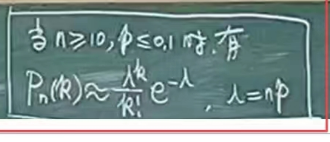 当 n≥10, p≤0.1 时, 有
Pₙ(k)≈λᵏ/k! e^(-λ), λ=np